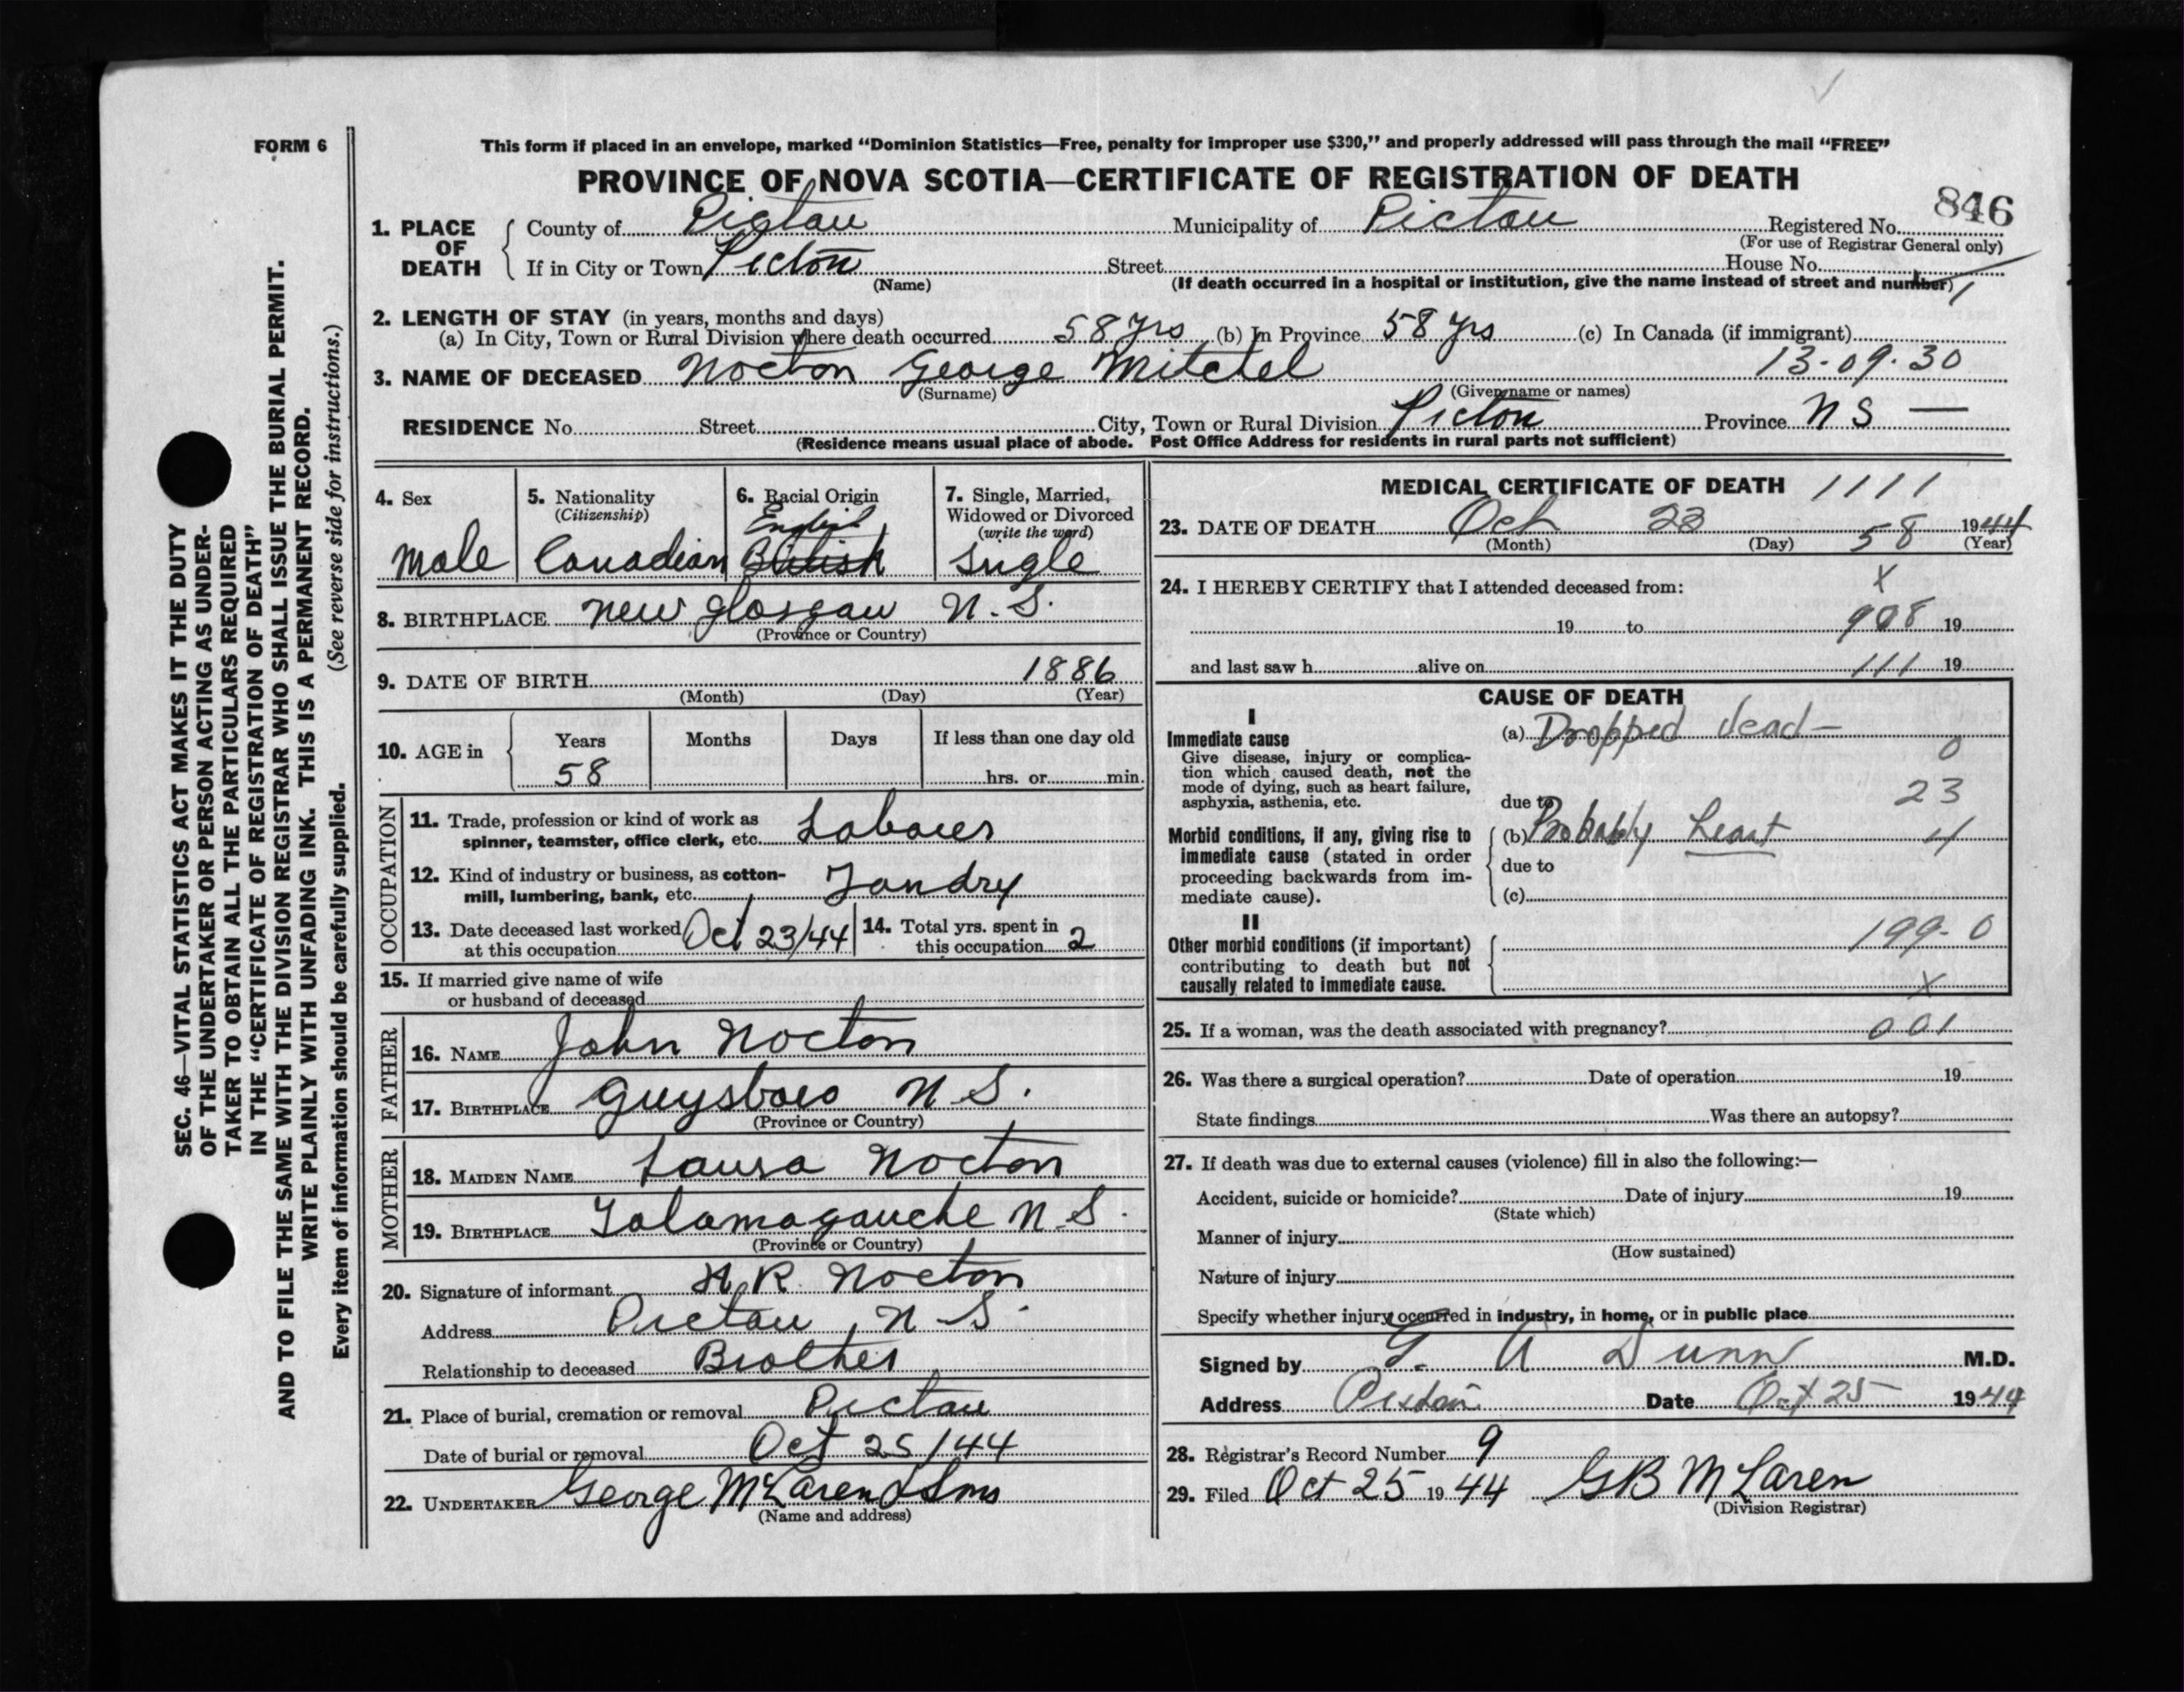 FORM 6
This form if placed in an envelope, marked "Dominion Statistics—Free, penalty for improper use $300," and properly addressed will pass through the mail "FREE"
PROVINCE OF NOVA SCOTIA—CERTIFICATE OF REGISTRATION OF DEATH
846
1. PLACE OF DEATH
County of Pictou Municipality of Pictou Registered No.
(For use of Registrar General only)
If in City or Town Pictou Street House No.
(Name) (If death occurred in a hospital or institution, give the name instead of street and number)
2. LENGTH OF STAY (in years, months and days)
(a) In City, Town or Rural Division where death occurred 58 yrs (b) In Province 58 yrs (c) In Canada (if immigrant)
3. NAME OF DECEASED Nocton George Mitchel 13-09-30
(Surname) (Given name or names)
RESIDENCE No. Street City, Town or Rural Division Pictou Province N S —
(Residence means usual place of abode. Post Office Address for residents in rural parts not sufficient)
4. Sex
Male
5. Nationality
(Citizenship)
Canadian
6. Racial Origin
English
British
7. Single, Married, Widowed or Divorced
(write the word)
Single
8. BIRTHPLACE New Glasgow N. S.
(Province or Country)
9. DATE OF BIRTH 1886
(Month) (Day) (Year)
10. AGE in Years Months Days If less than one day old
58 hrs. or min.
OCCUPATION
11. Trade, profession or kind of work as
spinner, teamster, office clerk, etc. Laborer
12. Kind of industry or business, as cotton-
mill, lumbering, bank, etc.
13. Date deceased last worked
at this occupation Oct 23/44
14. Total yrs. spent in
this occupation 2
15. If married give name of wife
or husband of deceased
FATHER
16. NAME John Nocton
17. BIRTHPLACE Guysboro N S.
(Province or Country)
MOTHER
18. MAIDEN NAME Laura Nocton
19. BIRTHPLACE Tatamagauche N. S.
(Province or Country)
20. Signature of informant H R Nocton
Address Pictou, N S.
Relationship to deceased Brother
21. Place of burial, cremation or removal Pictou
Date of burial or removal Oct 25/44
22. UNDERTAKER George McLaren & Sons
(Name and address)
MEDICAL CERTIFICATE OF DEATH 1111
23. DATE OF DEATH Oct 23 58 1944
(Month) (Day) (Year)
24. I HEREBY CERTIFY that I attended deceased from: X
19 to 908 19
and last saw h alive on 111 19
CAUSE OF DEATH
I
Immediate cause
Give disease, injury or complica-
tion which caused death, not the
mode of dying, such as heart failure,
asphyxia, asthenia, etc.
(a) Dropped dead —
0
23
due to
Morbid conditions, if any, giving rise to
immediate cause (stated in order
proceeding backwards from im-
mediate cause).
(b) Probably heart
due to
(c)
II
Other morbid conditions (if important)
contributing to death but not
causally related to immediate cause.
199-0
X
25. If a woman, was the death associated with pregnancy? 001
26. Was there a surgical operation? Date of operation 19
State findings Was there an autopsy?
27. If death was due to external causes (violence) fill in also the following:—
Accident, suicide or homicide? Date of injury 19
(State which)
Manner of injury
(How sustained)
Nature of injury
Specify whether injury occurred in industry, in home, or in public place
Signed by G. A Dunn M.D.
Address Pictou Date Oct 25 1944
28. Registrar's Record Number 9
29. Filed Oct 25 1944 GB McLaren
(Division Registrar)
SEC. 46—VITAL STATISTICS ACT MAKES IT THE DUTY
OF THE UNDERTAKER OR PERSON ACTING AS UNDER-
TAKER TO OBTAIN ALL THE PARTICULARS REQUIRED
IN THE "CERTIFICATE OF REGISTRATION OF DEATH"
AND TO FILE THE SAME WITH THE DIVISION REGISTRAR WHO SHALL ISSUE THE BURIAL PERMIT.
WRITE PLAINLY WITH UNFADING INK. THIS IS A PERMANENT RECORD.
Every item of information should be carefully supplied. (See reverse side for instructions.)